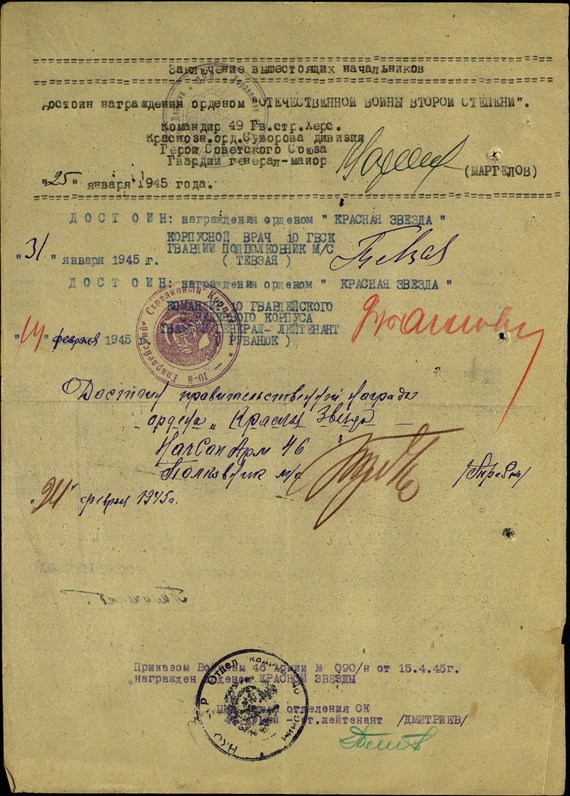 Заключение вышестоящих начальников
достоин награждения орденом "ОТЕЧЕСТВЕННОЙ ВОЙНЫ ВТОРОЙ СТЕПЕНИ".
Командир 49 Гв.стр.Херс.
Краснозн.орд.Суворова дивизии
Герой Советского Союза
Гвардии генерал-майор
(МАРГЕЛОВ)
"25" января 1945 года.
ДОСТОИН: награждения орденом " КРАСНАЯ ЗВЕЗДА "
КОРПУСНОЙ ВРАЧ 10 ГВСК
ГВАРДИИ ПОДПОЛКОВНИК М/С
"31" января 1945 г. ( ТЕВЗАЯ )
ДОСТОИН: награждения орденом " КРАСНАЯ ЗВЕЗДА "
10 ГВАРДЕЙСКОГО
КОРПУСА
ГЕНЕРАЛ-ЛЕЙТЕНАНТ
"14" февраля 1945 РУБАНЮК )
10-й Гвардейский Стрелковый
Достоин правительственной награды
ордена "Красная Звезда
НачСанАрм 46
Полковник м/с
"21" февраля 1945г.
Приказом 46 Армии № 090/н от 15.4.45г.
награжден орденом КРАСНОЙ ЗВЕЗДЫ
отделения ОК
ст.лейтенант /ДМИТРИЕВ/
НКО Отдел